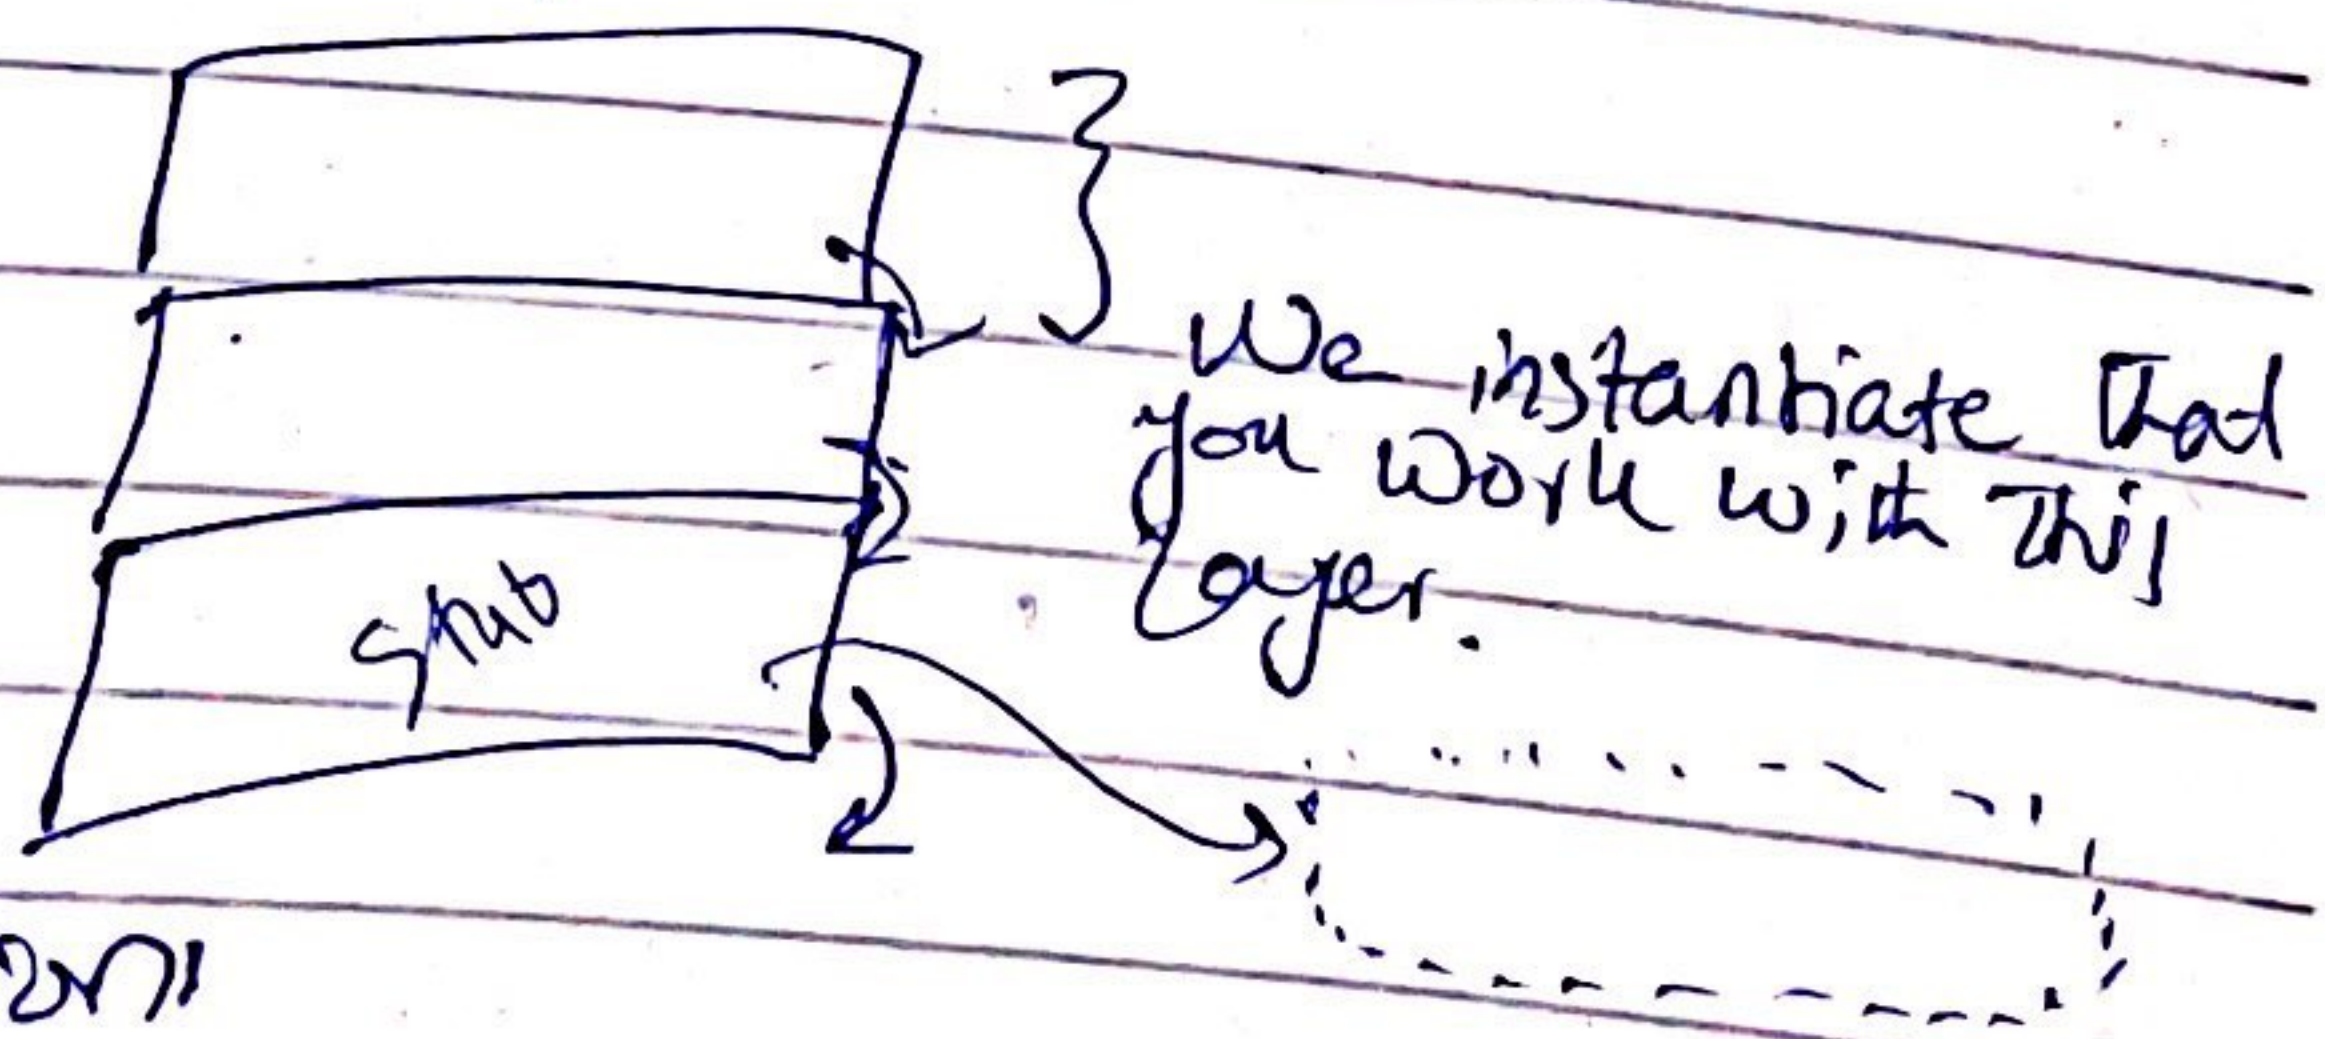 We instantiate that
you work with this
Layer.
Stub